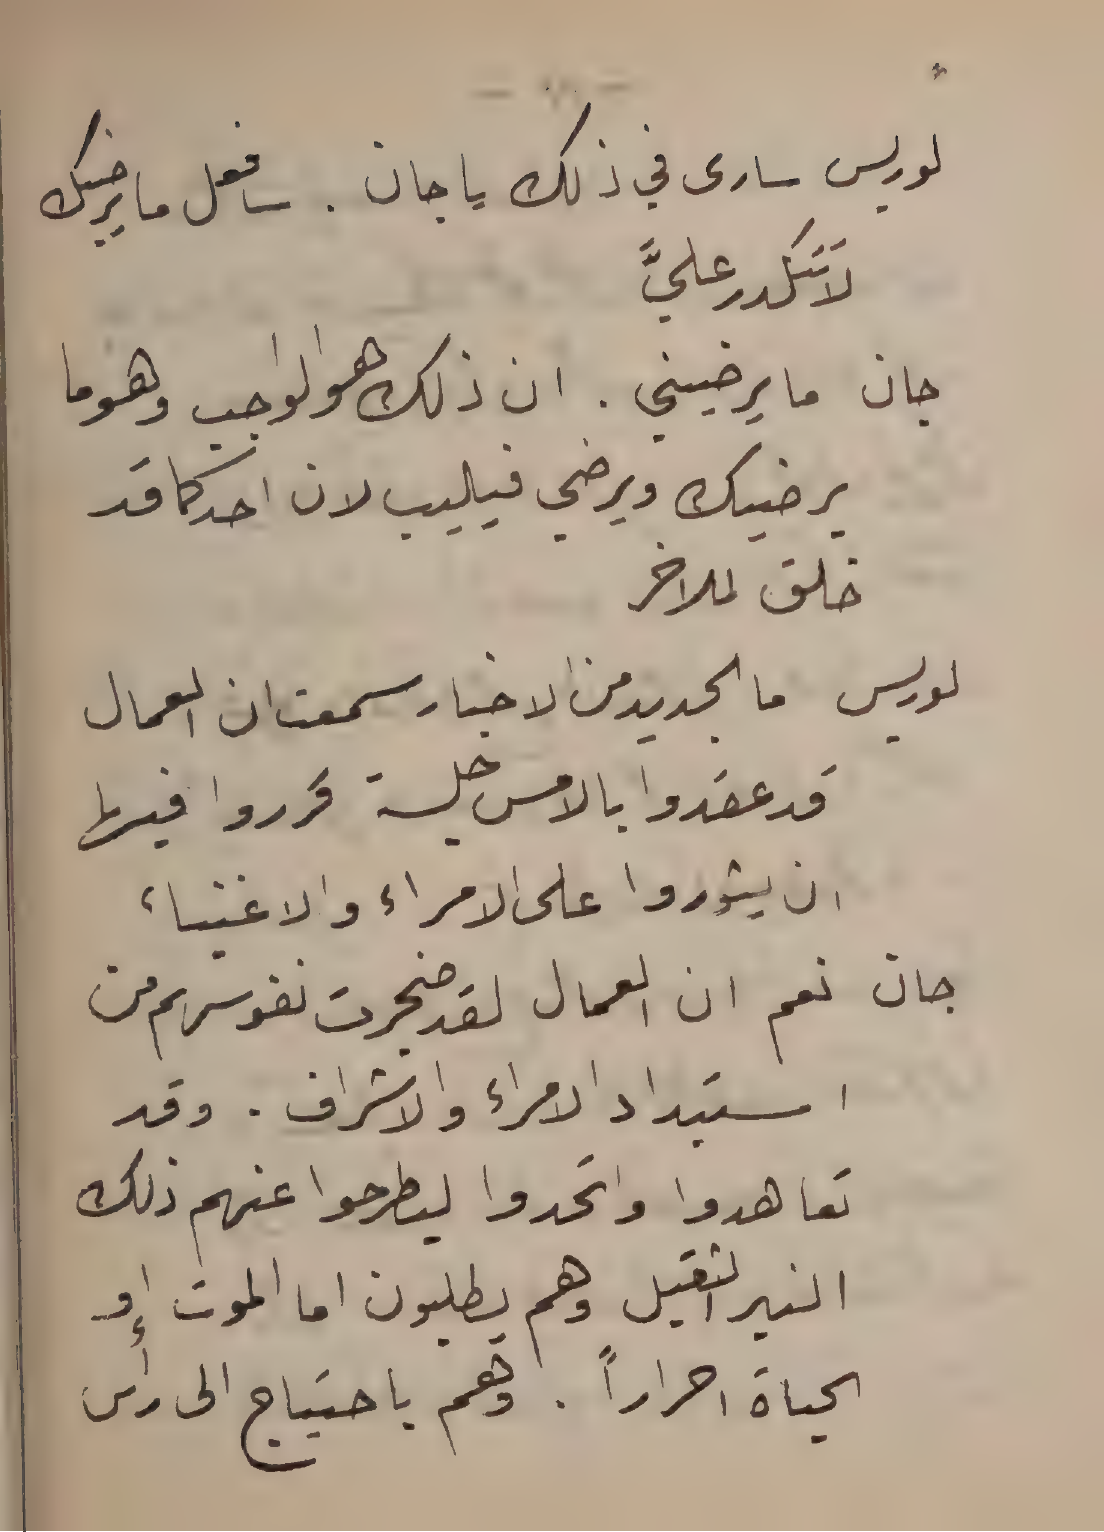 لوريس سارى في ذلك يا جان . سافعل ما يرضيك
لا تتكدر عليَّ
جان ما يرضيني . ان ذلك هو الواجب وهو ما
يرضيك ويرضي فيليب لان احدكما قد
خلق للاخر
لوريس ما الجديد من الاخبار سمعت ان العمال
قد عقدوا بالامس جلسة قرروا فيها
ان يثوروا على الامراء والاغنياء
جان نعم ان العمال لقد ضجرت نفوسهم من
استبداد الامراء والاشراف . وقد
تعاهدوا واتحدوا ليطرحوا عنهم ذلك
النير الثقيل وهم يطلبون اما الموت او
الحياة احراراً . وهم باحتياج الى رأس